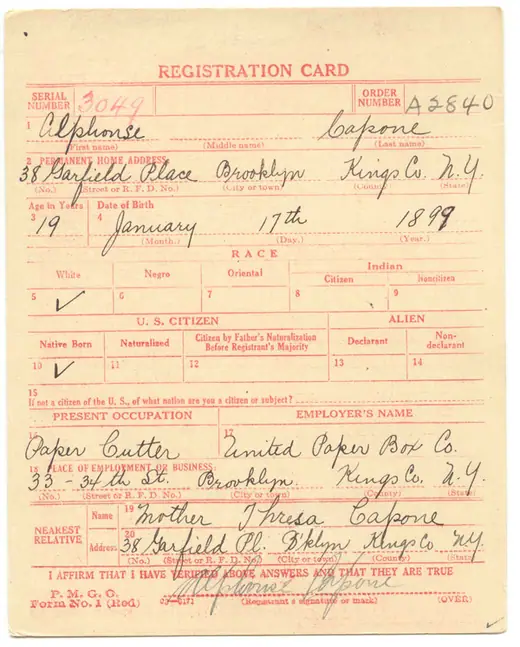 REGISTRATION CARD
SERIAL NUMBER 3049 ORDER NUMBER A2840
1 Alphonse Capone
(First name) (Middle name) (Last name)
2 PERMANENT HOME ADDRESS
38 Garfield Place Brooklyn Kings Co. N.Y.
(No.) (Street or R. F. D. No.) (City or town) (County) (State)
Age in Years Date of Birth
3 19 4 January 17th 1899
(Month.) (Day.) (Year.)
RACE
White Negro Oriental Indian
Citizen Noncitizen
5 ✓ 6 7 8 9
U. S. CITIZEN ALIEN
Native Born Naturalized Citizen by Father's Naturalization Before Registrant's Majority Declarant Non-declarant
10 ✓ 11 12 13 14
15
If not a citizen of the U. S., of what nation are you a citizen or subject?
PRESENT OCCUPATION EMPLOYER'S NAME
16 Paper Cutter 17 United Paper Box Co.
18 PLACE OF EMPLOYMENT OR BUSINESS:
33 - 34th St. Brooklyn. Kings Co. N.Y.
(No.) (Street or R. F. D. No.) (City or town) (County) (State)
NEAREST RELATIVE Name 19 Mother Thresa Capone
Address 20 38 Garfield Pl. B'klyn Kings Co NY
(No.) (Street or R. F. D. No.) (City or town) (County) (State)
I AFFIRM THAT I HAVE VERIFIED ABOVE ANSWERS AND THAT THEY ARE TRUE
P. M. G. O.
Form No. 1 (Red) 03-6171 Alphonse Capone
(Registrant's signature or mark) (OVER)